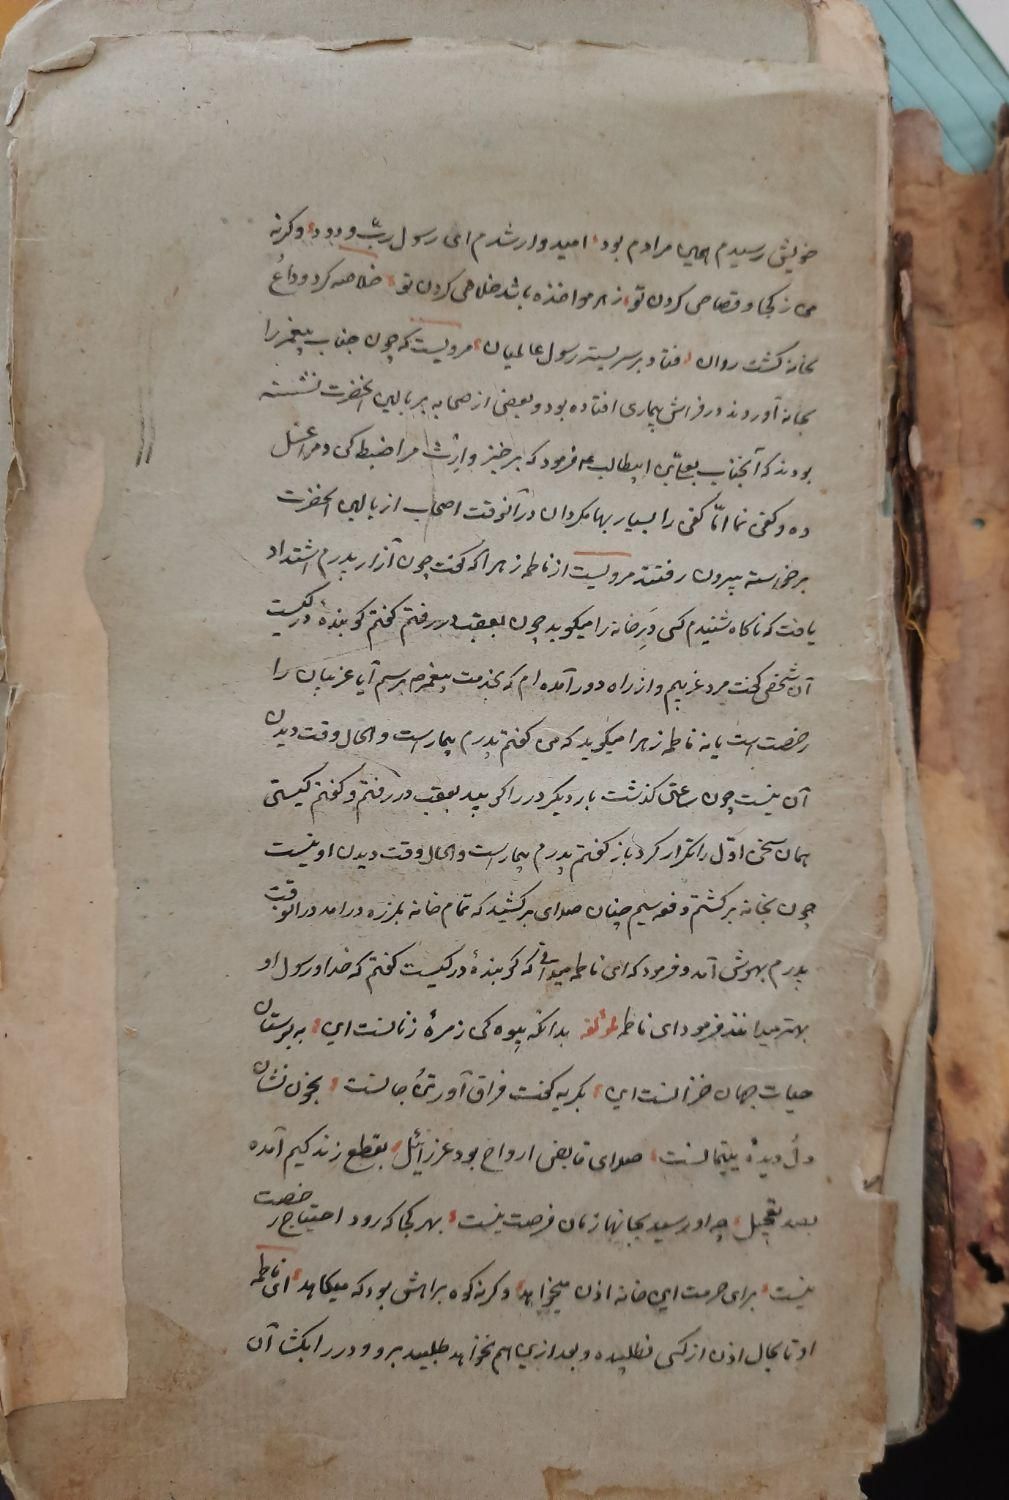 خویش رسیدم همین مرادم بود امیدوار شدم ای رسول ربّ ودود وکرنه
من کجا وقصاص کردن تو زهر مواخذه باشد خلاص کردن تو خلاصه کرد وداع
بخانه کشت روان فتاد بر سر بستر رسول عالمیان مرویست که چون جناب پیغمبر را
بخانه آوردند در فراش بیماری افتاده بود وبعضی از صحابه بر بالین آنحضرت نشسته
بودند که آنجناب بعلی بن ابیطالب فرمود که برخیز مرا ضبط کن ومرا غسل
ده وکفن نما امّا کفن را بسیار بها مکردان درآنوقت اصحاب از بالین آنحضرت
برخواسته بیرون رفتند مرویست از فاطمه زهرا که کفت چون آزار پدرم اشتداد
یافت که ناکاه شنیدم کسی درِ خانه را میکوبد چون بعقب در رفتم کفتم کوبندهٔ در کیست
آن شخص کفت مرد غریبم واز راه دور آمده ام که بخدمت پیغمبر برسم آیا غریبان را
رخصت است یا نه فاطمه زهرا میکوید که من کفتم پدرم بیمار است والحال وقت دیدن
آن نیست چون ساعتی کذشت بار دیکر در را کوبید بعقب در رفتم وکفتم کیستی
همان سخن اوّل را تکرار کرد باز کفتم پدرم بیمار است والحال وقت دیدن او نیست
چون بخانه برکشتم دفعه سیم چنان صدای برکشید که تمام خانه بلرزه درامد درانوقت
پدرم بهوش آمد وفرمود که ای فاطمه میدانی که کوبندهٔ در کیست کفتم که خدا ورسول او
بهتر میدانند فرمود ای فاطمه لمؤلفه بدانکه بیوه کن زمرهٔ زنانست این به بوستان
حیات جهان خزانست این بکریه کفت فراق آور تن وجانست بخون نشان
دل دیدهٔ یتیمانست صدای قابض ارواح بود عزرائیل بقطع زندکیم آمده
بصد تعجیل چه او رسید بجانها زمان فرصت نیست بهر کجا که رود احتیاج رخصت
نیست برای حرمت این خانه اذن میخواهد وکرنه کوه براهش بود که میکاهد ای فاطمه
او تا بحال اذن از کسی نطلبیده وبعد ازین هم نخواهد طلبید برو ودر را بکشا آن